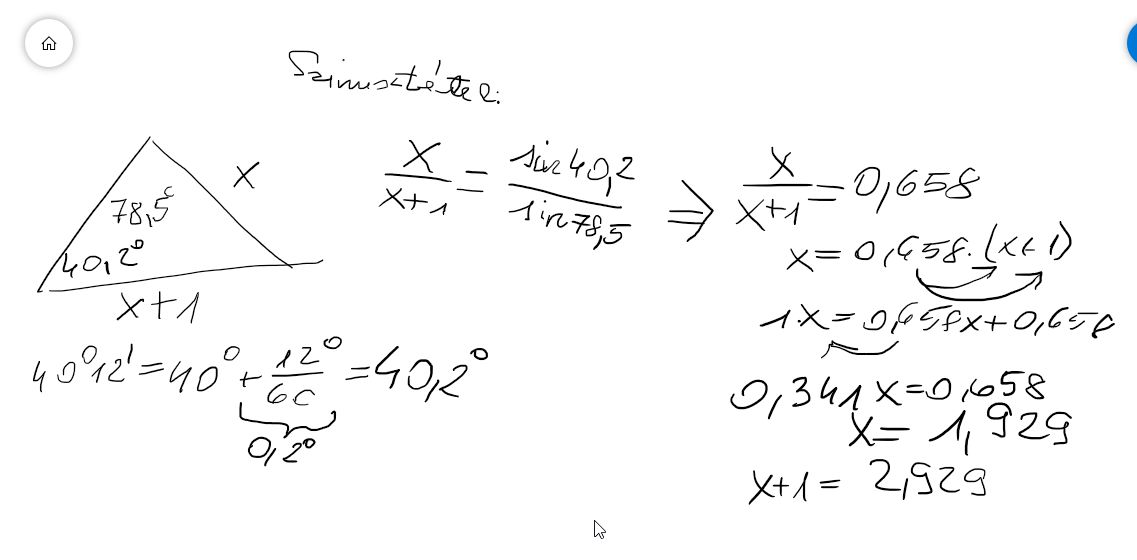 Szinusztétel:
x
78,5°
40,2°
x+1
40°12' = 40° + 12°/60 = 40,2°
0,2°
x/(x+1) = sin 40,2 / sin 78,5 ⇒ x/(x+1) = 0,658
x = 0,658·(x+1)
1·x = 0,658x + 0,658
0,341 x = 0,658
x = 1,929
x+1 = 2,929